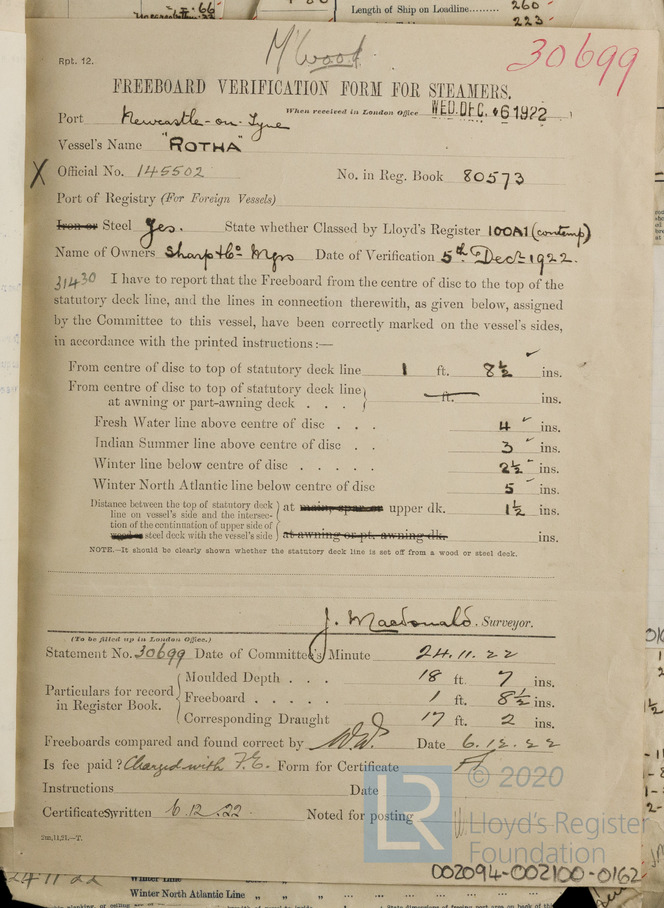 Length of Ship on Loadline......... 260
223
Rpt. 12.
30699
FREEBOARD VERIFICATION FORM FOR STEAMERS.
Port Newcastle-on-Tyne When received in London Office WED. DEC. 6 1922
Vessel's Name "ROTHA"
X Official No. 145502 No. in Reg. Book 80573
Port of Registry (For Foreign Vessels)
Iron or Steel Yes. State whether Classed by Lloyd's Register 100A1 (contemp)
Name of Owners Sharp & Co Mgrs Date of Verification 5th Dect 1922.
31430 I have to report that the Freeboard from the centre of disc to the top of the
statutory deck line, and the lines in connection therewith, as given below, assigned
by the Committee to this vessel, have been correctly marked on the vessel's sides,
in accordance with the printed instructions:—
From centre of disc to top of statutory deck line 1 ft. 8½ ins.
From centre of disc to top of statutory deck line
at awning or part-awning deck . . . ft. ins.
Fresh Water line above centre of disc . . . 4 ins.
Indian Summer line above centre of disc . . 3 ins.
Winter line below centre of disc . . . . . 2½ ins.
Winter North Atlantic line below centre of disc 5 ins.
Distance between the top of statutory deck
line on vessel's side and the intersec- at main, spar or upper dk. 1½ ins.
tion of the continuation of upper side of
wood or steel deck with the vessel's side at awning or pt. awning dk. ins.
NOTE.—It should be clearly shown whether the statutory deck line is set off from a wood or steel deck.
J. Macdonald. Surveyor.
(To be filled up in London Office.)
Statement No. 30699 Date of Committee's Minute 24.11.22
Particulars for record in Register Book.
Moulded Depth . . . 18 ft. 7 ins.
Freeboard . . . . . 1 ft. 8½ ins.
Corresponding Draught 17 ft. 2 ins.
Freeboards compared and found correct by Date 6.12.22
Is fee paid? Charged with F.E. Form for Certificate
Instructions Date
Certificates written 6.12.22 Noted for posting
2m,11,21.—T.
LR © 2020
Lloyd's Register
Foundation
002094-002100-0162
24.11.22
Winter Line
Winter North Atlantic Line